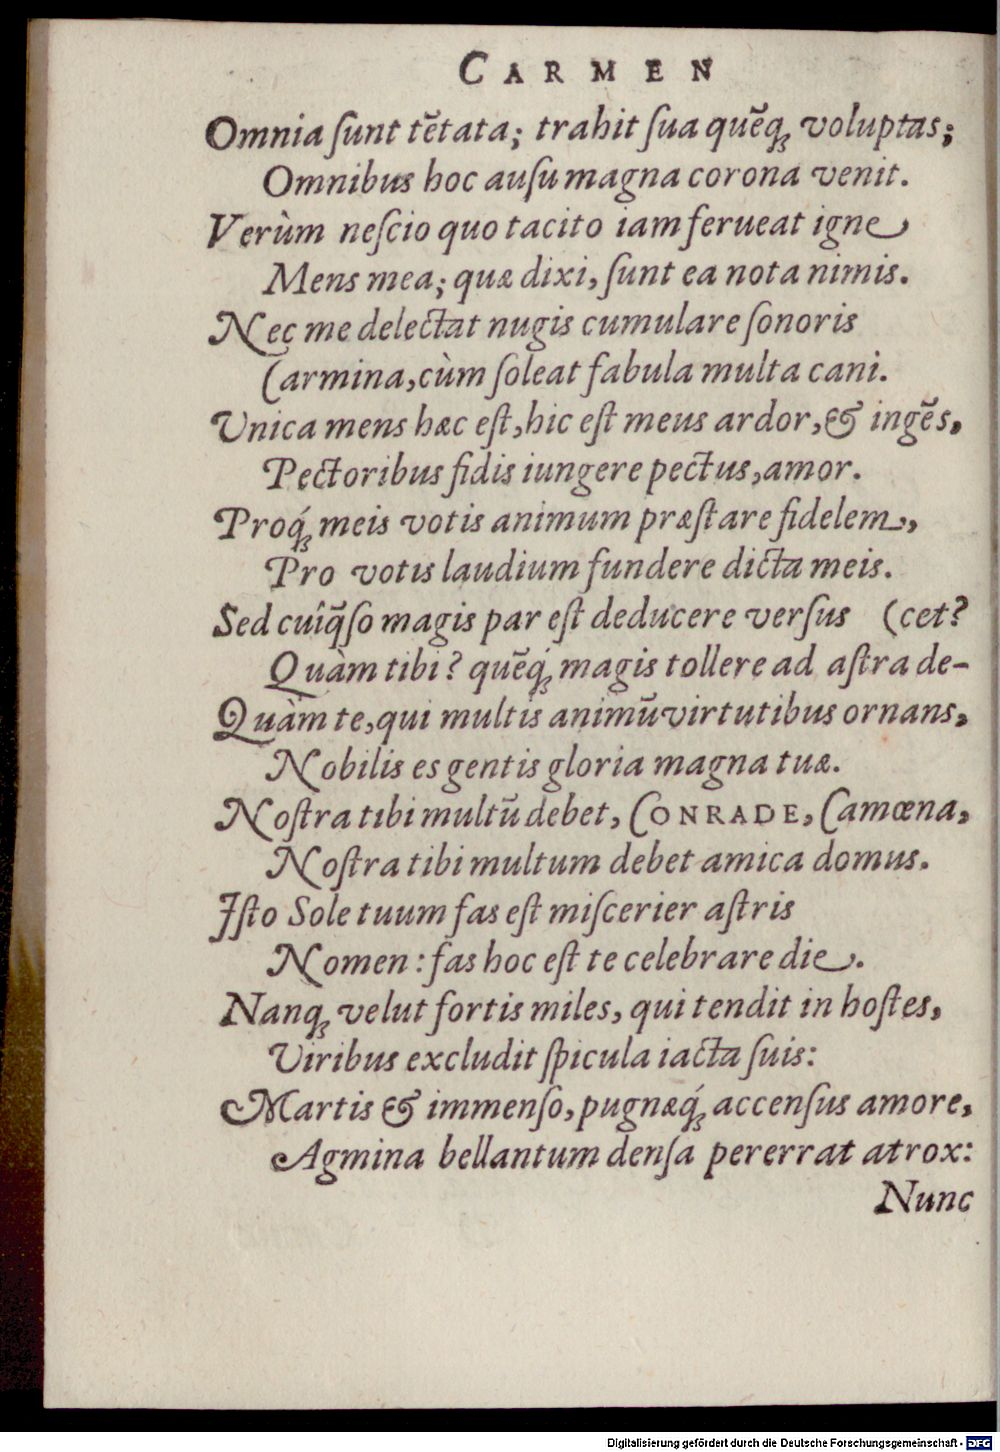 CARMEN
Omnia ſunt tẽtata; trahit ſua quẽq́ꝫ voluptas;
Omnibus hoc auſu magna corona venit.
Verùm neſcio quo tacito iam ferueat igne
Mens mea; quæ dixi, ſunt ea nota nimis.
Nec me delectat nugis cumulare ſonoris
Carmina, cùm ſoleat fabula multa cani.
Vnica mens hæc eſt, hic eſt meus ardor, & ingẽs,
Pectoribus fidis iungere pectus, amor.
Proq́ꝫ meis votis animum præſtare fidelem,
Pro votis laudium fundere dicta meis.
Sed cuîq̃ſo magis par eſt deducere verſus (cet?
Quàm tibi? quẽq́ꝫ magis tollere ad aſtra de-
Quàm te, qui multis animũ virtutibus ornans,
Nobilis es gentis gloria magna tuæ.
Noſtra tibi multũ debet, CONRADE, Camœna,
Noſtra tibi multum debet amica domus.
Iſto Sole tuum fas eſt miſcerier aſtris
Nomen: fas hoc eſt te celebrare die.
Nanqꝫ velut fortis miles, qui tendit in hoſtes,
Viribus excludit ſpicula iacta ſuis:
Martis & immenſo, pugnæq́ꝫ accenſus amore,
Agmina bellantum denſa pererrat atrox:
Nunc
Digitalisierung gefördert durch die Deutsche Forschungsgemeinschaft - DFG